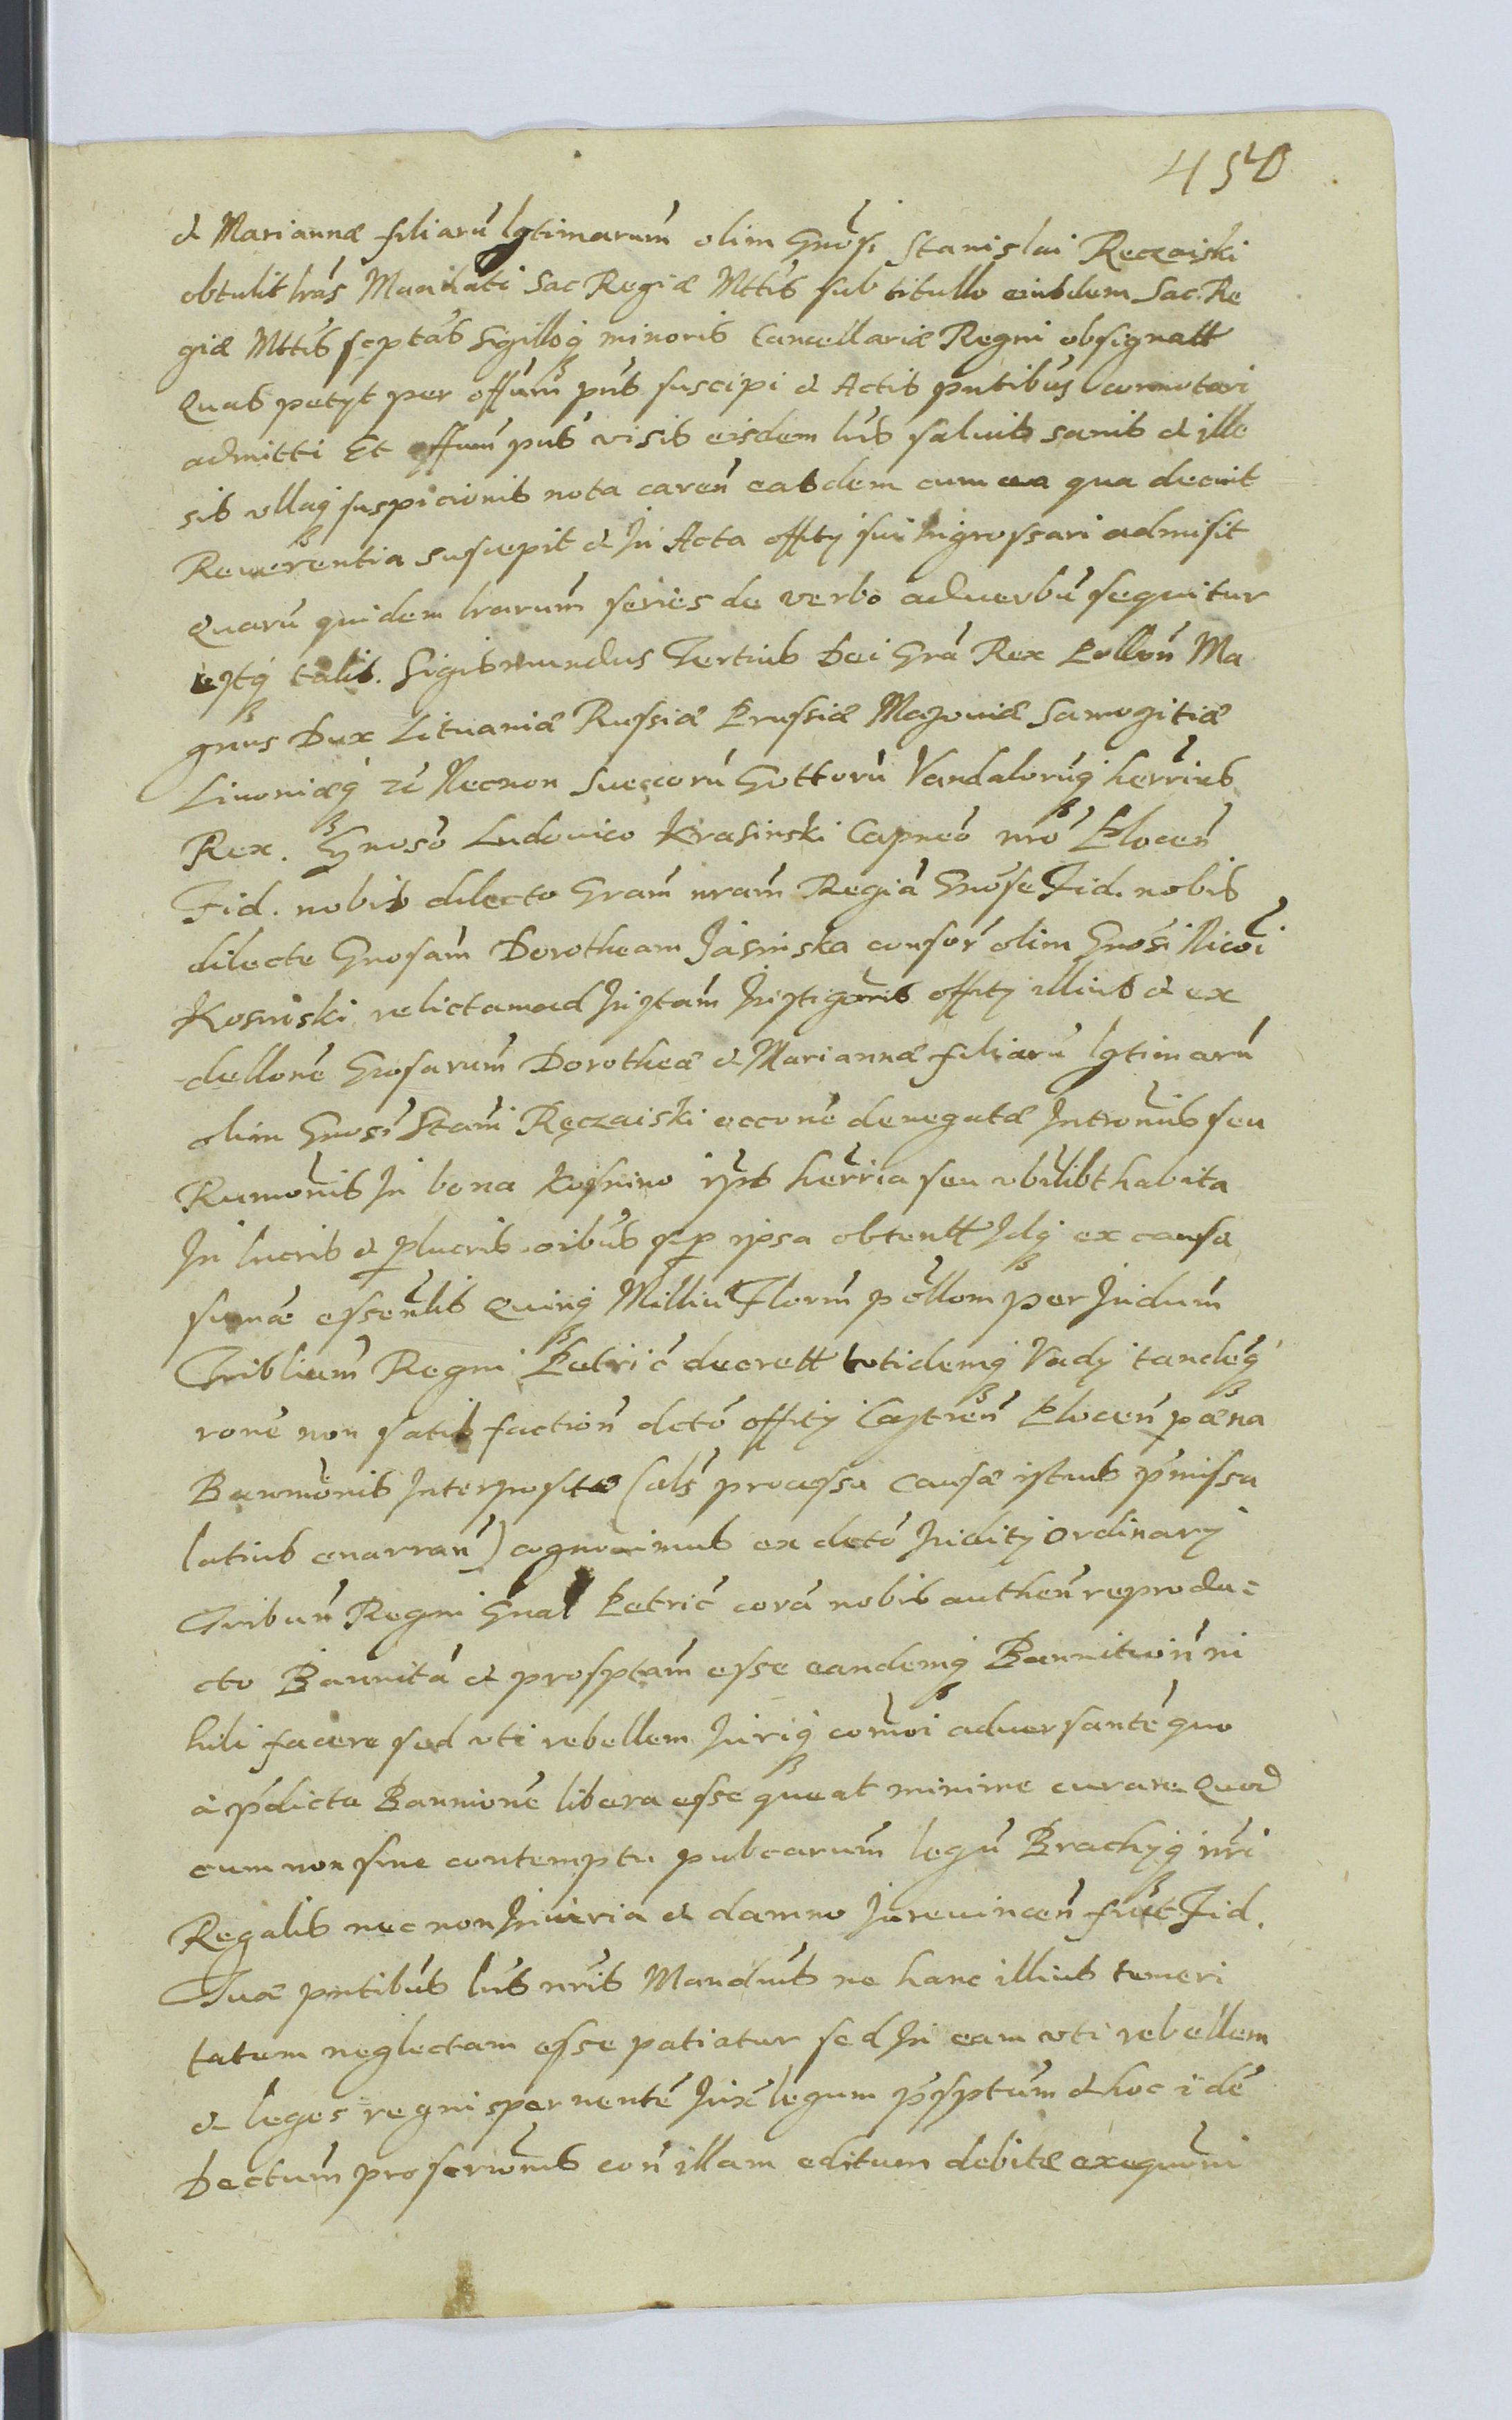 450
& Mariannæ filiarū lgtimarum̄ olim Gnōsi Stanislai Ręczaiski
obtulit lrās Mandati Sac Regiæ Mttis sub titullo eiusdem Sac. Re
giæ Mttis scptas Sigilloq minoris Cancellariæ Regni obsignatt
Quas petyt per offum̄ pn̄s suscipi & Actis pntibus connotari
admitti Et offum̄ pn̄s visis eisdem lris saluis sanis & ille
sis vllaq suspicionis nota careń easdem cum ea qua decuit
Reuerentia suscepit & In Acta offity sui Ingrossari admisit
Quarū quidem lrarum̄ series de verbo aduerbū sequitur
estq talis. Sigismundus Tertius Dei Grā Rex Polloń Ma
gnus Dux Lituaniæ Russiæ Prussiæ Mazouiæ Samogitiæ
Liuoniæq zć Necnon Suecorū Gottorū Vandalorūq herrius
Rex. Gnoso Ludouico Krasinski Capneo nrō Płoceń
Fid. nobis dilecto Gram̄ nram̄ Regiā Gnōse Fid. nobis
dilecte Gnosam̄ Dorotheam Jasinska consor olim Gnosi Nicoī
Kosinski relictam ad Instam̄ Instigoris offity illius & ex
dellone Gnosarum̄ Dorotheæ & Mariannæ filiarū lgtimarū
olim Gnosi Stanī Ręczaiski occone denegatæ Intronis seu
Rumonis In bona Kosnino ipīs herria seu vbilibt habita
In lucris & plucris oibus sup ipsa obtentt Idq ex causa
sumæ essenlis Quinq Milliū Florm̄ pollom per Iudum̄
Triblium̄ Regni Petrić decrett totidemq Vady tandēq
rone non satisfactioń dcto offity Castreń Płoceń pæna
Bannionis Interposita (als processu causæ istius pmissa
latius enarrań) cognouimus ex dcto Iudity ordinary
Tribuń Regni Gnal Petrić corā nobis autheń reprodu=
cto Bannitā & prosptam̄ esse eandemq Bannitioń ni
hili facere sed vti rebellem Iuriq comōi aduersantē quo
à pdicta Bannione libera esse queat minime curare Quod
cum non sine contemptu pubcarum̄ legū Brachyq nrī
Regalis nec non Iniuria & damno Iureuinceń fiāt Fid.
Tuæ pntibus lris nrīs Mandus ne hanc illius temeri
tatem neglectam esse patiatur sed In eam vti rebellem
& leges regni spernentē Iuxˉ legum psptum̄ & hoc idē
Dectum̄ proscrionis coń illam editum debitæ exequōni